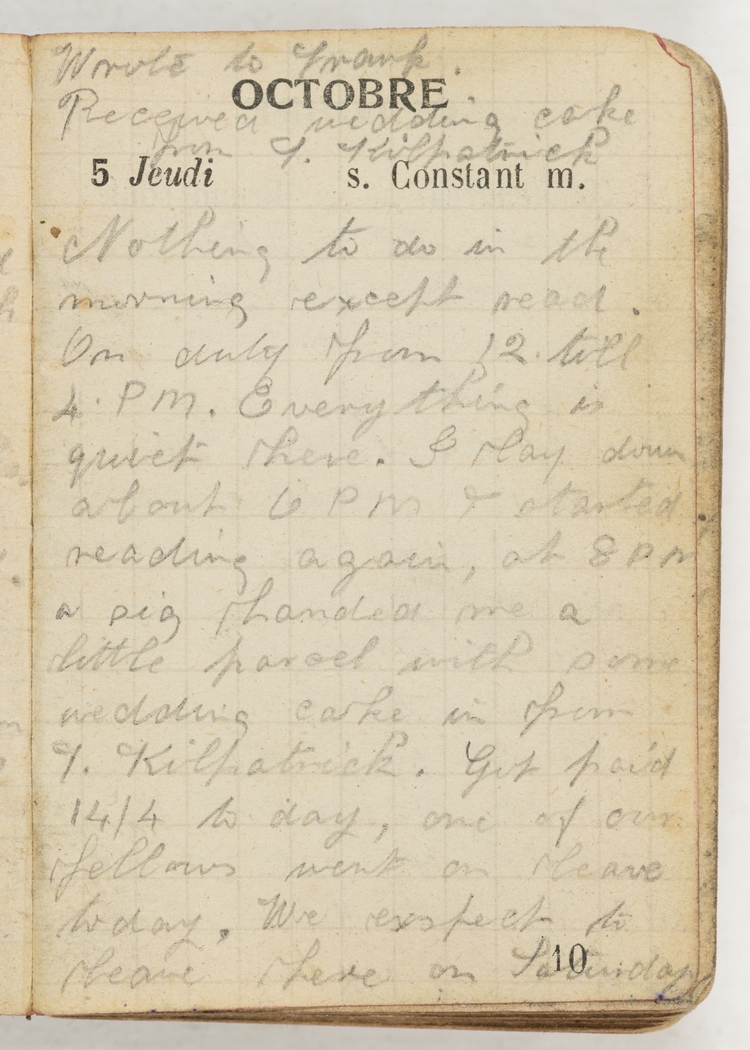 Wrote to Frank.
OCTOBRE
Received wedding cake
from T. Kilpatrick
5 Jeudi s. Constant m.
Nothing to do in the
morning except read.
On duty from 12. till
4. PM. Everything is
quiet here. I lay down
about 6 PM & started
reading again, at 8 PM
a sig handed me a
little parcel with some
wedding cake in from
T. Kilpatrick. Got paid
14/4 to day, one of our
fellows went on leave
today. We exspect to
leave here on Saturday
10